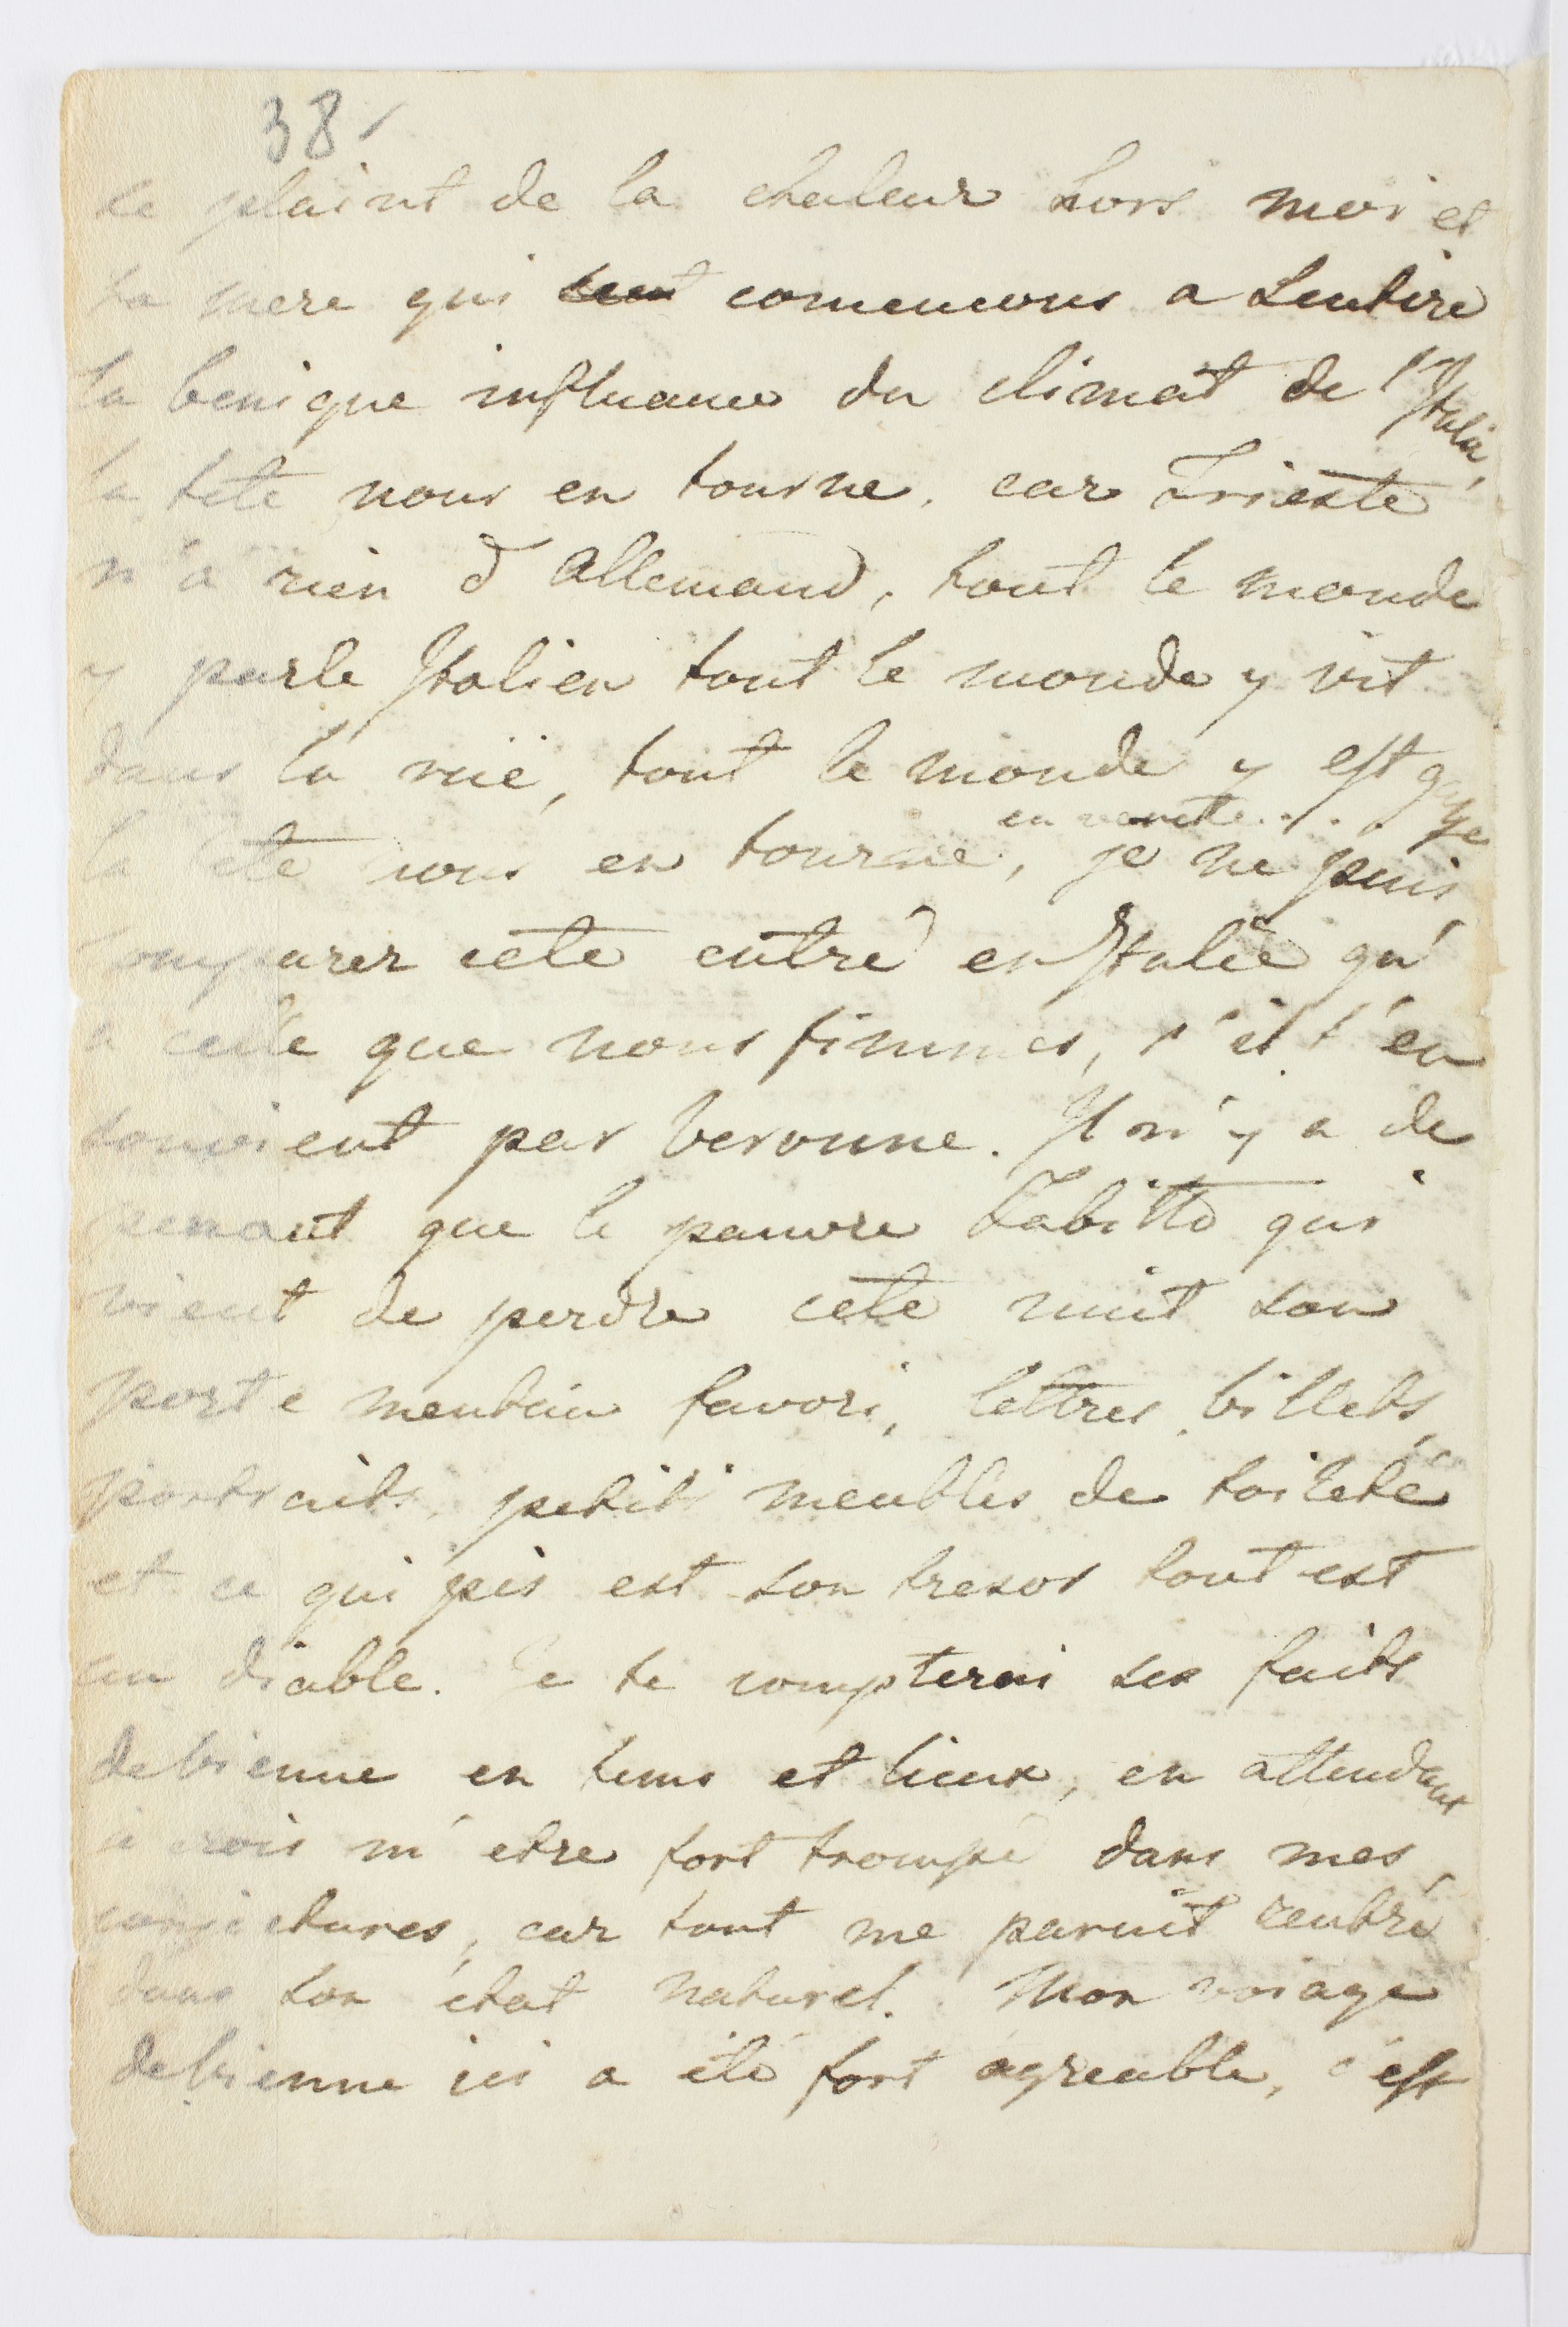 38
se plaint de la chaleur hors moi et
ta mere qui comencons a sentire
la benigne influance du climat de l'Italie,
la tete nous en tourne, car Trieste
n'a rien d'Allemand, tout le monde
y parle Italien tout le monde y vit
dans la rüe, tout le monde y est gaye
en verité...
la tete nous en tourne, je ne puis
comparer cete entré en Italie qu'
a celle que nous fimmes, s'il t'en
souvient par Veronne. Il n'y a de
que le pauvre Zabitto qui
vient de perdre cete nuit son
porte mentau favori, lettres, billets,
portraits, petits meubles de toilete
et ce qui pis est son tresor tout est
au diable. Je te compterai ses faits
de Vienne en tems et lieux, en attendant
je crois m'etre fort trompé dans mes
conjectures, car tout me parait rentré
dans son état naturel. Mon voiage
de Vienne ici a été fort agreable, c'est